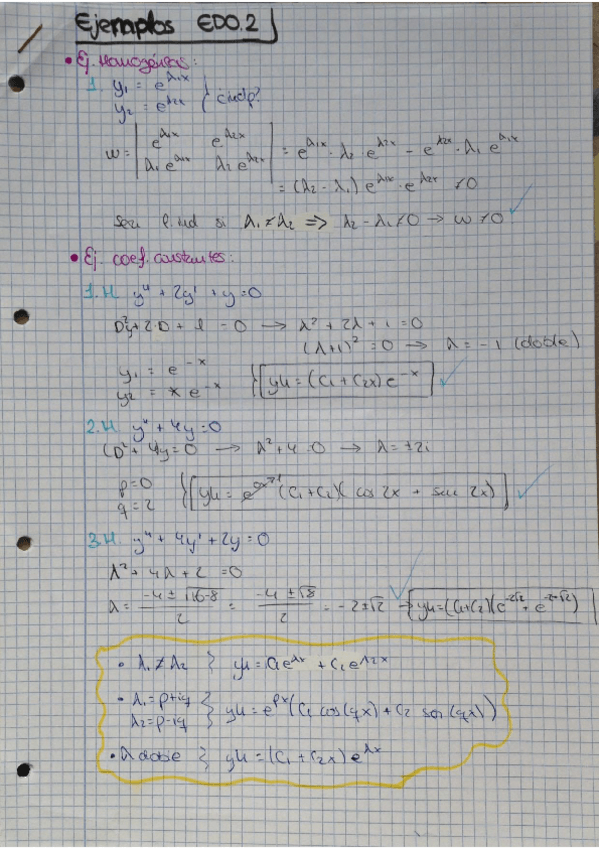 Ejemplos EDO.2
• Ej. Homogéneas:
1. y₁ = e^λ₁x
y₂ = e^λ2x
w = | e^λ₁x e^λ2x | = e^λ₁x · λ₂ e^λ2x − e^λ2x · λ₁ e^λ₁x
| λ₁e^λ₁x λ₂ e^λ2x | = (λ₂ − λ₁) e^λ₁x · e^λ2x ≠ 0
si λ₁ ≠ λ₂ => λ₂ − λ₁ ≠ 0 → w ≠ 0
• Ej. coef. constantes:
1. H y'' + 2y' + y = 0
+ 2·D + 1 = 0 → λ² + 2λ + 1 = 0
(λ+1)² = 0 → λ = −1 (doble)
y₁ = e^−x
y₂ = x e^−x } yH = (C₁ + C₂x) e^−x
2. H y'' + 4y = 0
(D² + 4y = 0 → λ² + 4 = 0 → λ = ±2i
p = 0
q = 2 } yH = (C₁+C₂)( cos 2x + sen 2x)
3. H y'' + 4y' + 2y = 0
λ² + 4λ + 2 = 0
λ = −4 ± √16−8 / 2 = −4 ± √8 / 2 = −2 ± √2 → yH = (C₁+C₂)(e^−2√2 + e^−2+√2)
• λ₁ ≠ λ₂ } yH = C₁e^λx + C₂e^λ2x
• λ₁ = p+iq
λ₂ = p−iq } yH = e^px (C₁ cos(qx) + C₂ sen(qx))
• λ doble } yH = (C₁ + C₂x) e^λx